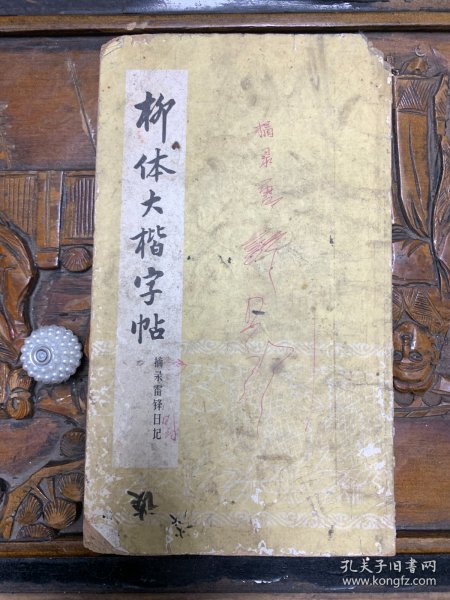 柳体大楷字帖
摘录雷锋日记
摘录雷
孔夫子旧书网
www.kongfz.com